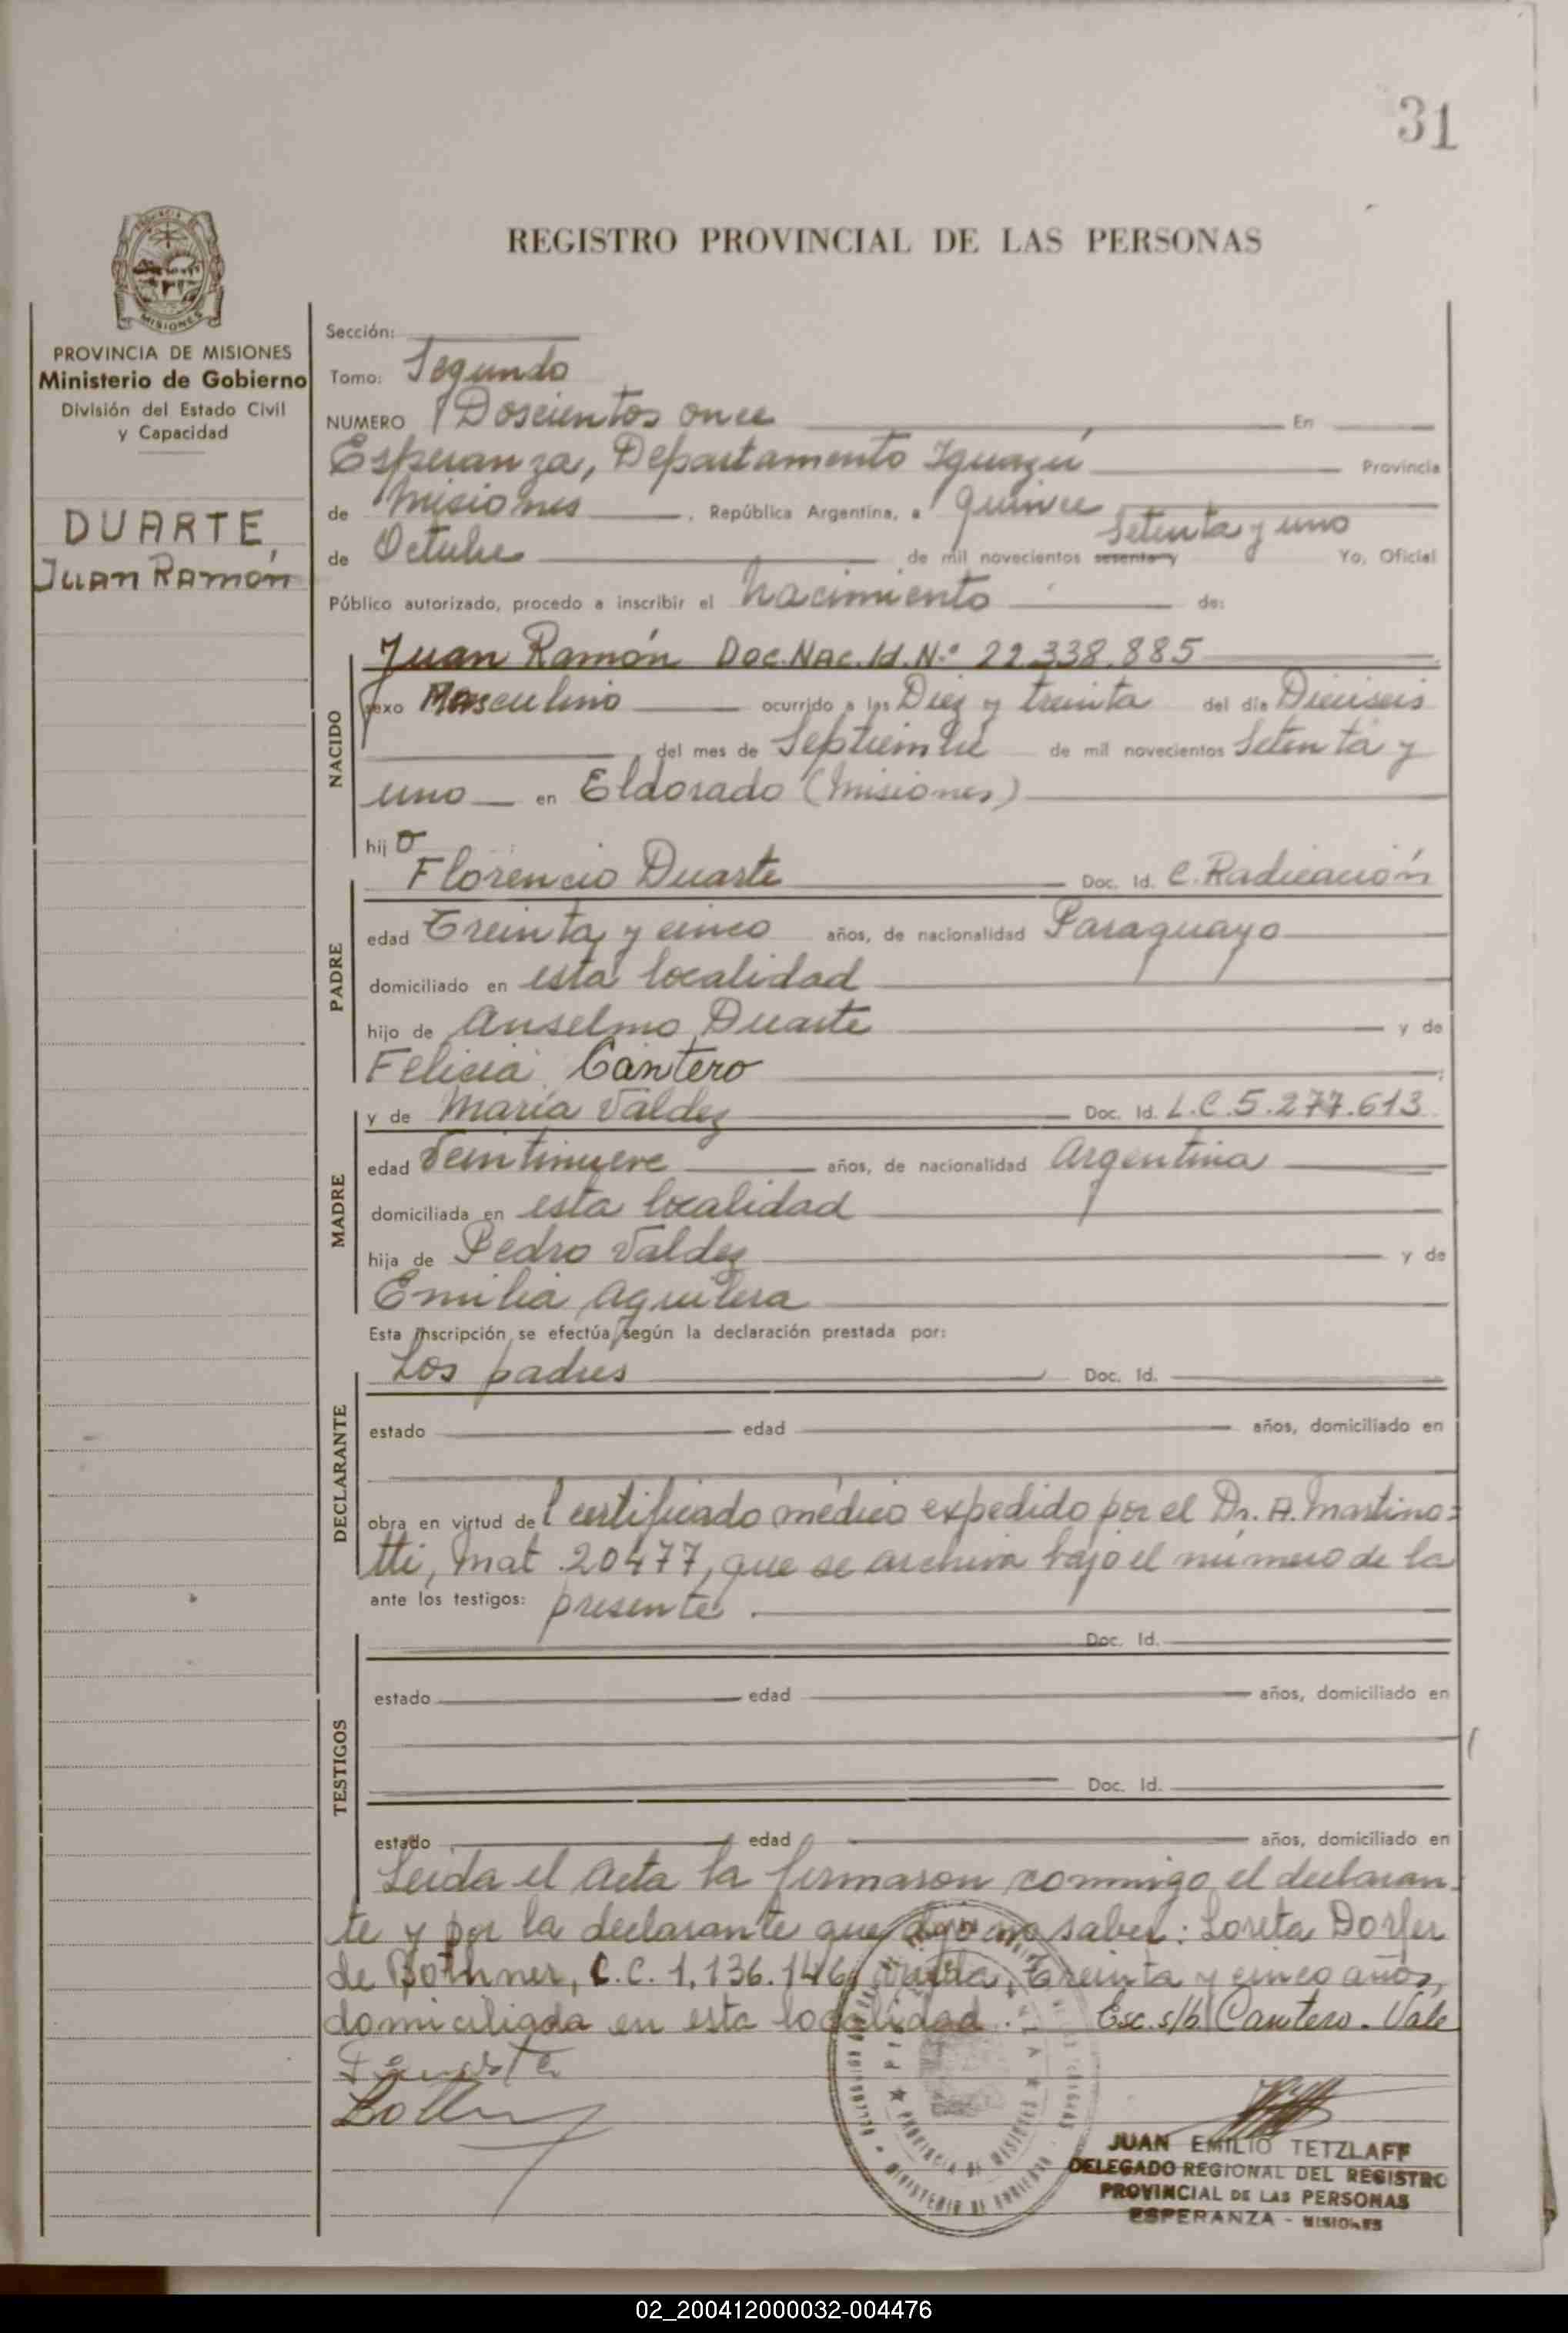 31
REGISTRO PROVINCIAL DE LAS PERSONAS
MISIONES
PROVINCIA DE MISIONES
Ministerio de Gobierno
División del Estado Civil
y Capacidad
DUARTE,
Juan Ramón
Sección:
Tomo: Segundo
NUMERO Doscientos once En
Esperanza, Departamento Iguazú Provincia
de Misiones, República Argentina, a quince
setenta y uno
de Octubre de mil novecientos sesenta y Yo, Oficial
Público autorizado, procedo a inscribir el nacimiento de:
NACIDO
Juan Ramón Doc. Nac. Id. N.º 22.338.885
sexo Masculino ocurrido a las Diez y treinta del día Dieciseis
del mes de Septiembre de mil novecientos setenta y
uno en Eldorado (Misiones)
hijo
PADRE
Florencio Duarte Doc. Id. C. Radicación
edad Treinta y cinco años, de nacionalidad Paraguayo
domiciliado en esta localidad
hijo de Anselmo Duarte y de
Felicia Cantero
MADRE
y de María Valdez Doc. Id. L.C. 5.277.613
edad Veintinueve años, de nacionalidad Argentina
domiciliada en esta localidad
hija de Pedro Valdez y de
Emilia Aguilera
Esta inscripción se efectúa según la declaración prestada por:
DECLARANTE
Los padres Doc. Id.
estado edad años, domiciliado en
obra en virtud del certificado médico expedido por el Dr. A. Martino=
tti, Mat. 20477, que se archiva bajo el número de la
ante los testigos: presente.
TESTIGOS
Doc. Id.
estado edad años, domiciliado en
Doc. Id.
estado edad años, domiciliado en
Leida el Acta la firmaron conmigo el declaran-
te y por la declarante que dijo no saber: Loreta Dorfer
de Bothner, C.C. 1.136.146, Treinta y cinco años,
domiciliada en esta localidad. Esc. s/b. Cantero. Vale
JUAN EMILIO TETZLAFF
DELEGADO REGIONAL DEL REGISTRO
PROVINCIAL DE LAS PERSONAS
ESPERANZA - MISIONES
PROVINCIA DE MISIONES
MINISTERIO DE GOBIERNO
02_200412000032-004476